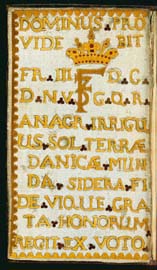 DOMINUS PRO
VIDE BIT
FR. III F D. G.
D. N. V. G. Q. R.
ANAGR. IRRIGU
US SOL TERRÆ
DANICÆ MUN
DA SIDERA FI
DE VOLVE GRA
TA HONORUM
REGIT EX VOTO